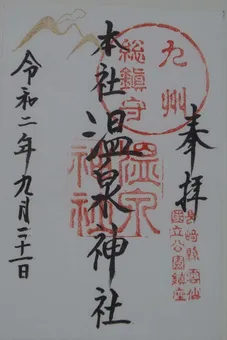 奉拝
長崎県雲仙
国立公園鎮座
九州
総鎮守
本社温泉神社
温泉
神社
令和二年九月二十一日